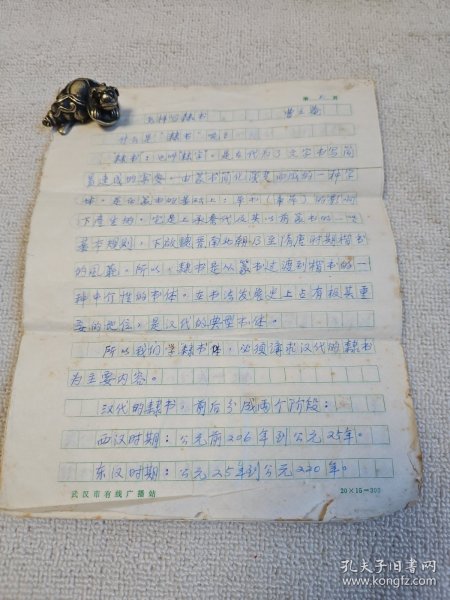 第 页
怎样写隶书 曹立庵
什么是“隶书”呢？
隶书：也叫“隶字”。是古代为了文字书写简
易速成的需要，由篆书简化演变而成的一种字
体。是在篆书的基础上，草书（章草）的影响
下产生的。它是上承秦代及其以前篆书的一些
基本规则，下启魏晋南北朝乃至隋唐时期楷书
的风范。所以，隶书是从篆书过渡到楷书的一
种中介性的书体。在书法发展史上占有极其重
要的地位，是汉代的典型书体。
所以我们学隶书体，必须讲求汉代的隶书
为主要内容。
汉代的隶书，前后分成两个阶段：
西汉时期：公元前206年到公元25年。
东汉时期：公元25年到公元220年。
武汉市有线广播站 20×15=300
孔夫子旧书网
www.kongfz.com